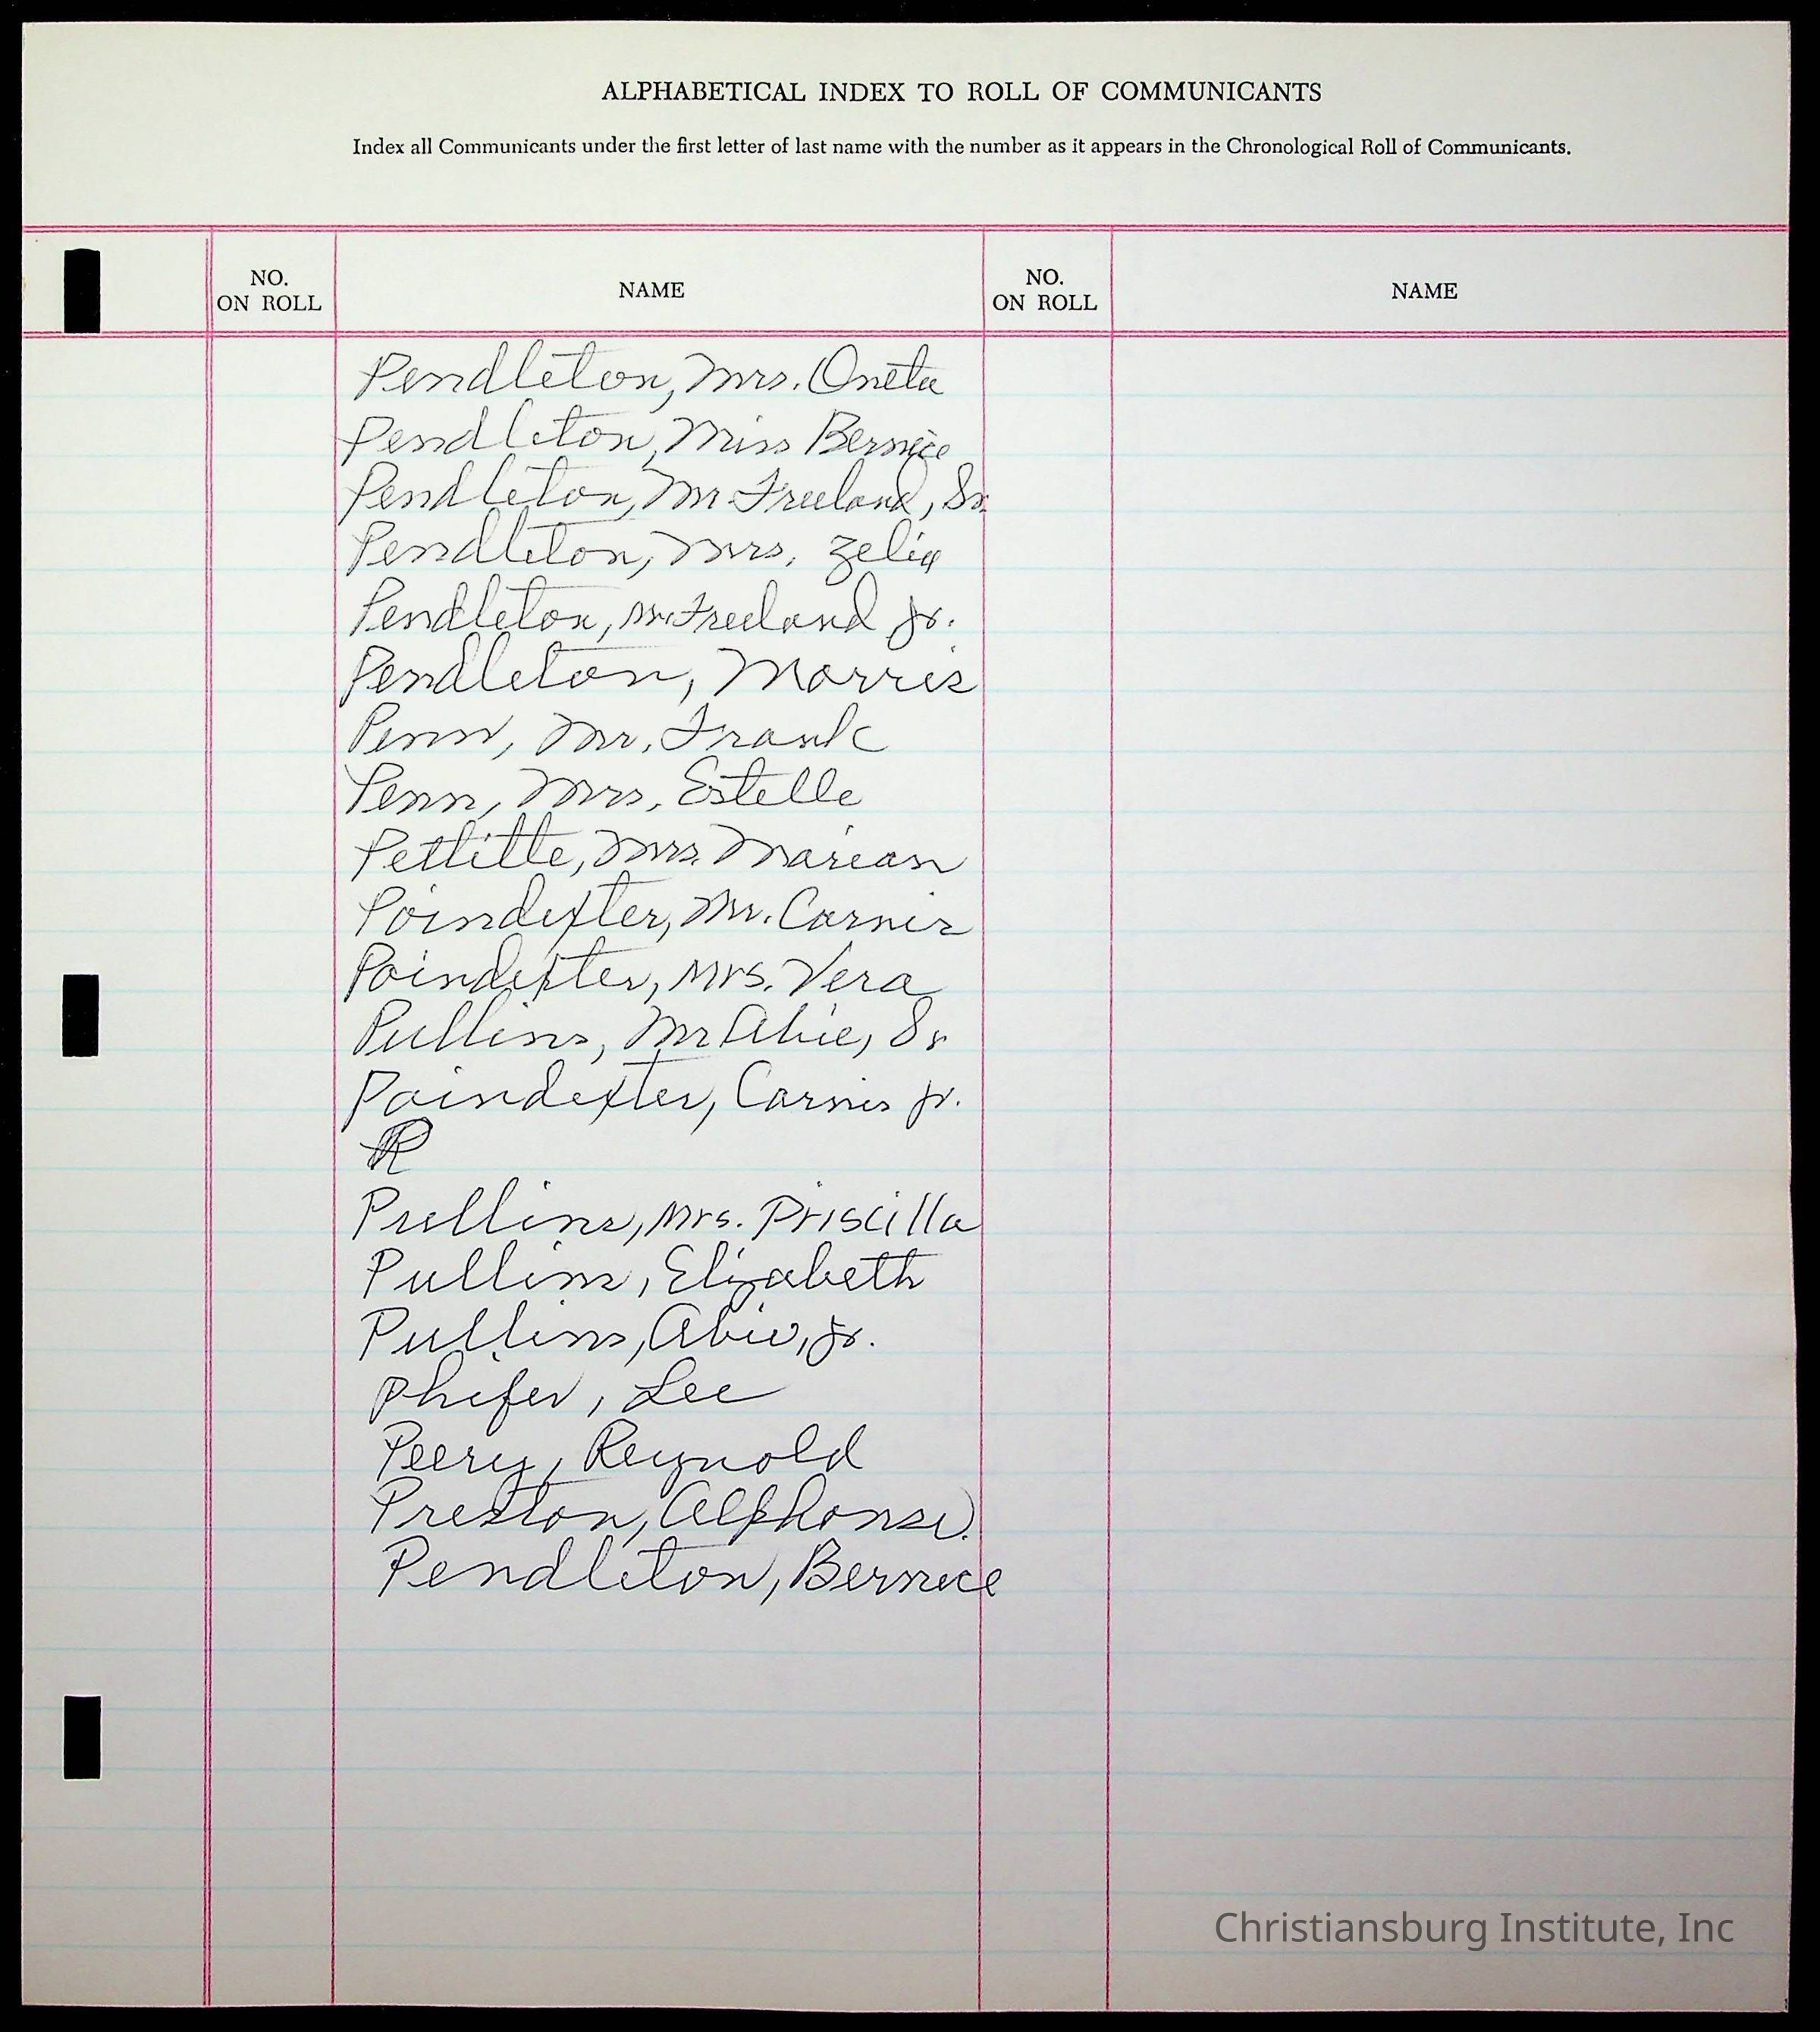 ALPHABETICAL INDEX TO ROLL OF COMMUNICANTS
Index all Communicants under the first letter of last name with the number as it appears in the Chronological Roll of Communicants.
NO. ON ROLL NAME NO. ON ROLL NAME
Pendleton, Mrs. Oneta
Pendleton, Miss Bernice
Pendleton, Mr Freeland, Sr.
Pendleton, Mrs. Zelia
Pendleton, Mr. Freeland Jr.
Pendleton, Morris
Penn, Mr. Frank
Penn, Mrs. Estelle
Pettitte, Mrs. Marian
Poindexter, Mr. Carnis
Poindexter, Mrs. Vera
Pullins, Mr Abie, Sr
Poindexter, Carnis Jr.
R
Pullins, Mrs. Priscilla
Pullins, Elizabeth
Pullins, Abie, Jr.
Phifer, Lee
Peery, Reynold
Preston, Alphonse
Pendleton, Bernice
Christiansburg Institute, Inc